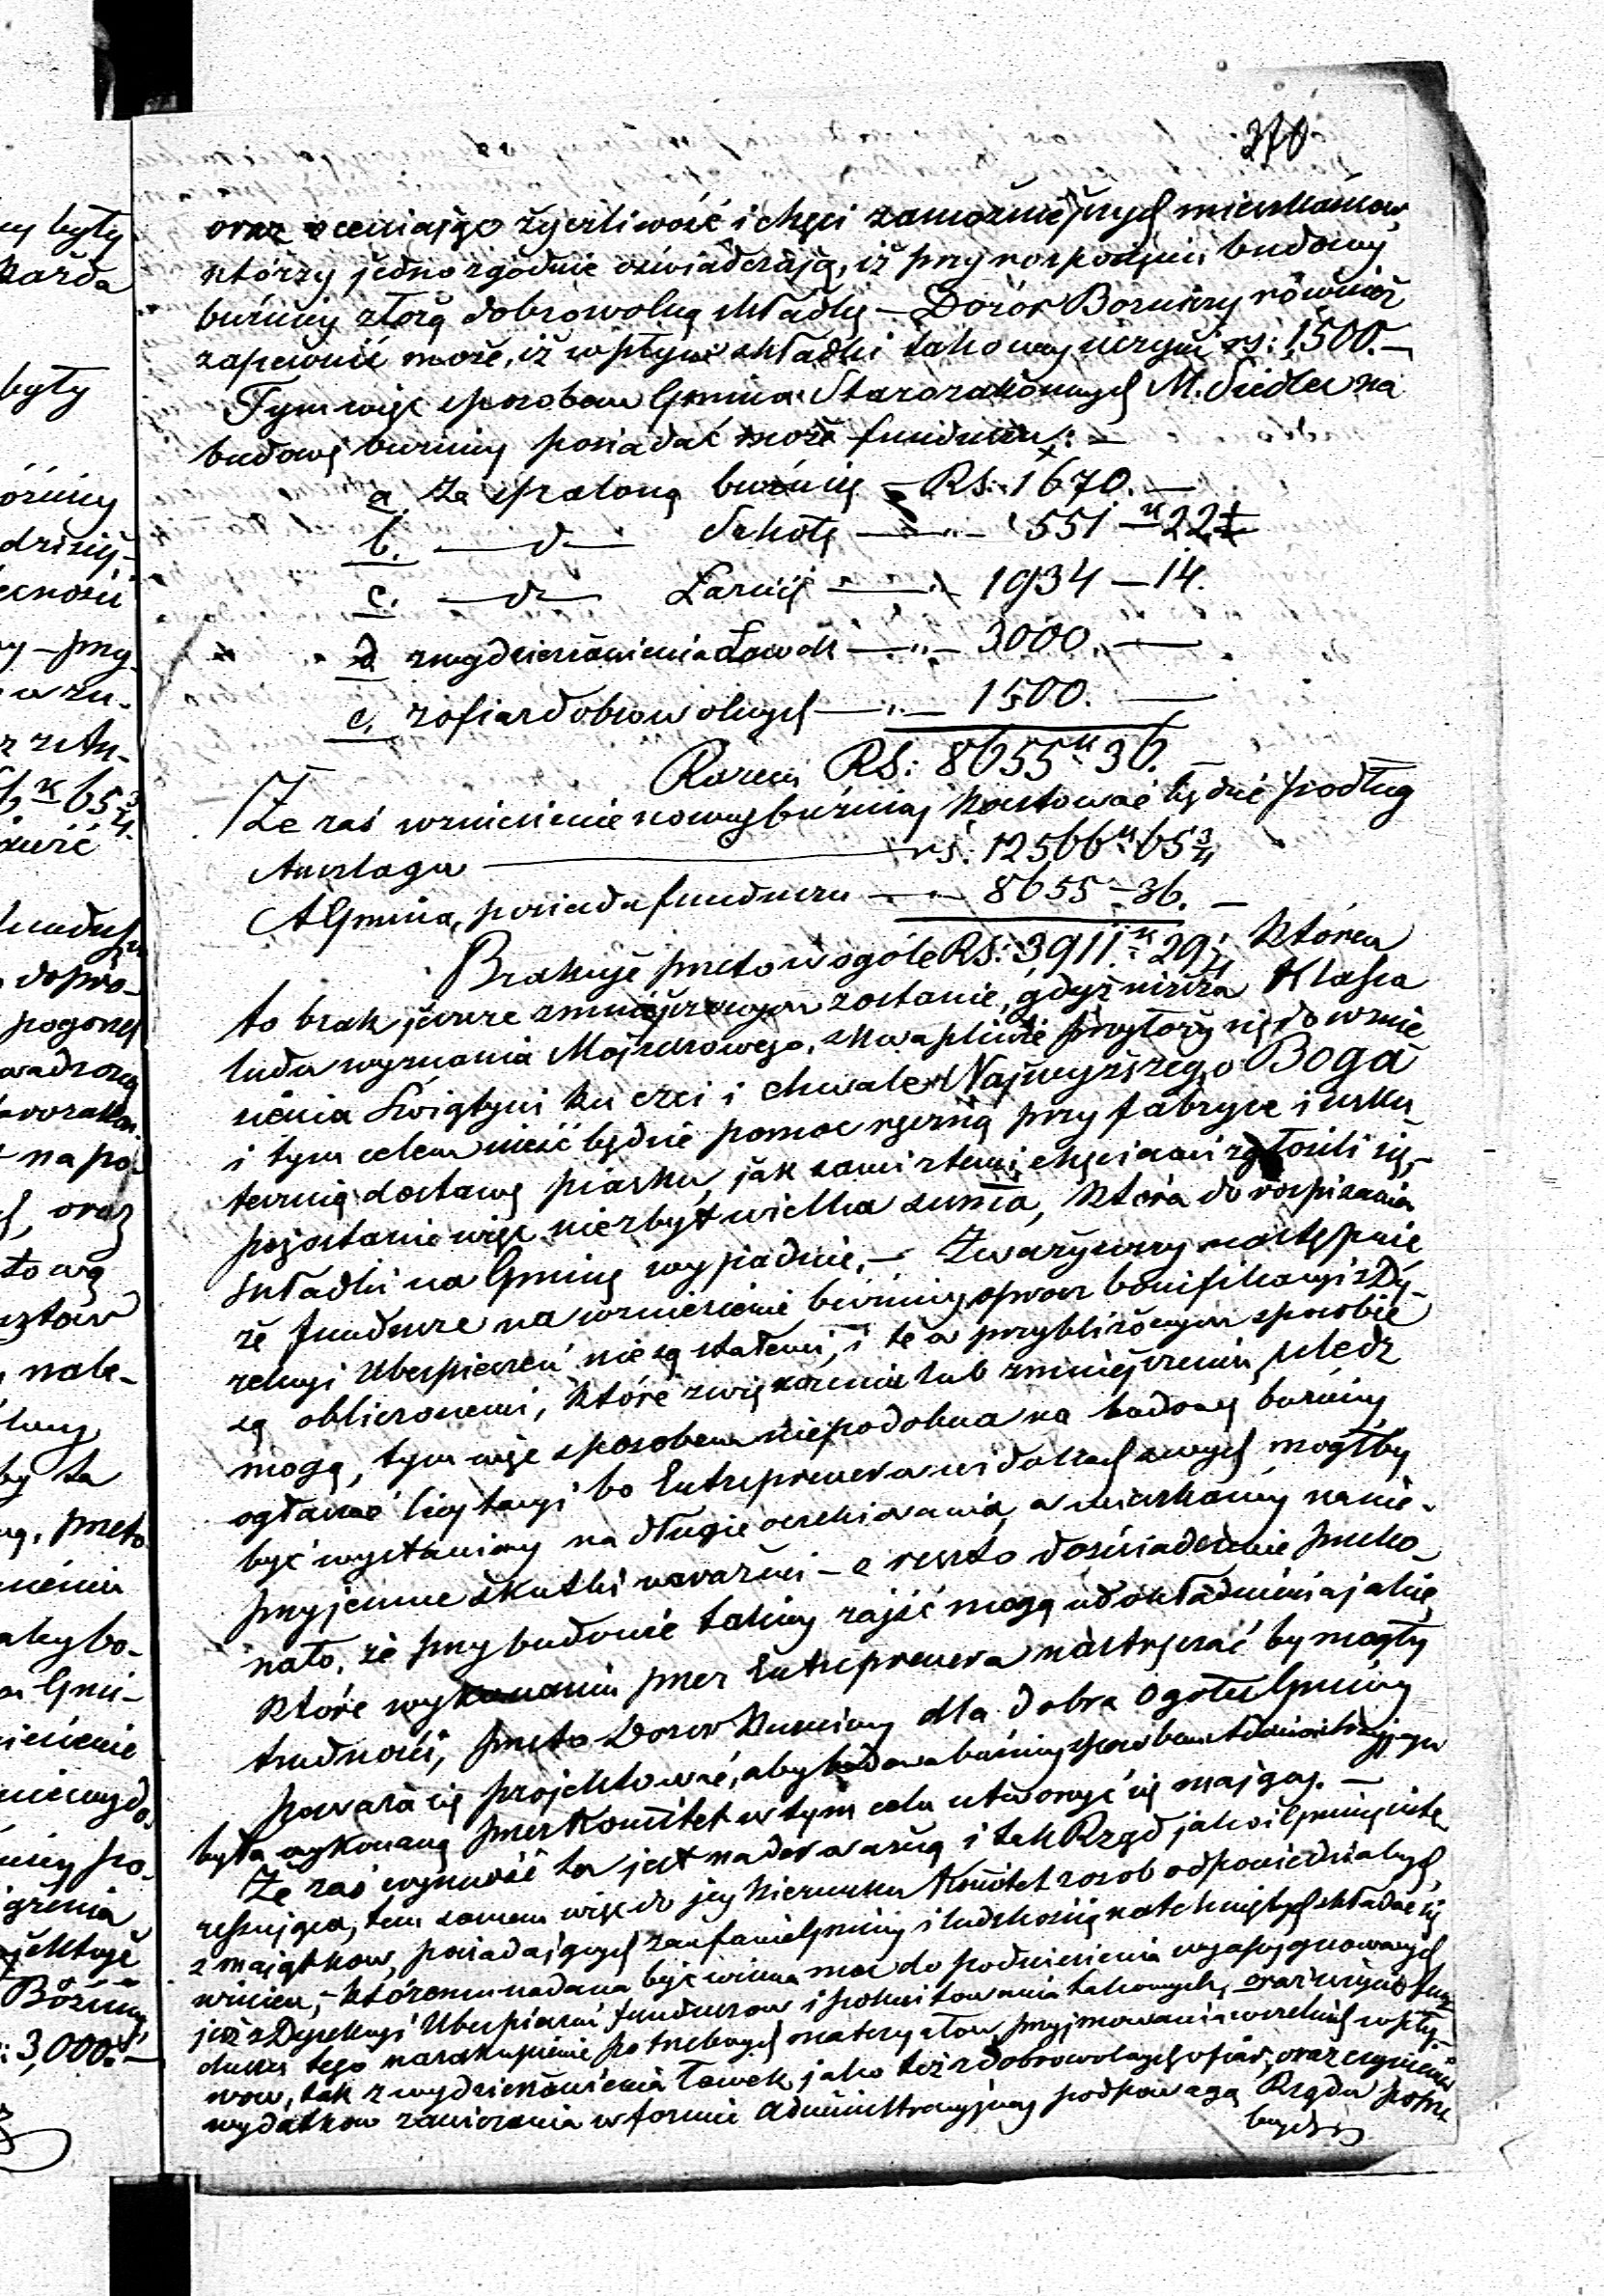 370
oraz oceniając życzliwość i chęci zamożniejszych mieszkańców,
którzy jednozgodnie oświadczają, iż przy rozpoczęciu budowy
bużnicy złożą dobrowolną składkę – Dozór Bożniczy również
zapewnić może, iż wpływ składki takowej uczyni rs: 1,500.–
Tym więc sposobem Gmina Starozakonnych M. Siedlec na
budowę bużnicy posiadać może funduszu: –
a za spaloną bużnicę – RS: 1670. –
b. — d — Szkołę — „ – 551 – k 22
c. — d — Łaźnię — „ – 1934 – 14.
d z wydzierżawienia Ławek — „ – 3000. –
e. z ofiar dobrowolnych — „ – 1500. –
Razem RS: 8655 k 36. –
Że zaś wzniesienie nowej bużnicy kosztować będzie podług
Anszlagu — rs: 12566 k 65 3/4
A Gmina, posiada funduszu — – 8655 – 36. –
Brakuje przeto w ogóle RS: 3911 k 29 3/4 któren
to brak jeszcze zmniejszonym zostanie, gdyż niższa Klassa
ludu wyznania Mojżeszowego, skwapliwie przyłoży się do wznie
sienia Świątyni ku czci i chwale Najwyższego Boga
i tym celem nieść będzie pomoc ręczną przy fabryce i usku
teczni dostawę piasku, jak sami z temi chęciami zgłosili się, –
pozostanie więc niezbyt wielka summa, która do rozpisania
składki na Gminę wypadnie. – Zważywszy następnie,
że fundusze na wzniesienie bużnicy oprócz bonifikacyi z Dy-
rekcyi Ubezpieczeń nie są stałemi, i te w przybliżonym sposobie
są obliczonemi, które zwiększeniu lub zmniejszeniu uledz
mogą, tym więc sposobem niepodobna na budowę bużnicy
ogłaszać licytacyi bo Entreprener w widokach swych mógłby
być wystawiony na długie oczekiwania, a mieszkańcy na nie-
przyjemne skutki narażeni – zresztą doświadczenie przeko-
nało, że przy budowie takiej zajść mogą niedokładności jakie,
które wykonaniu przez Entreprenera nastręczać by mogły
trudności, przeto Dozór Bużniczy dla dobra Ogółu Gminy
poważa się projektować, aby budowa bużnicy sposobem administracyjnym
była wykonaną przez Komitet w tym celu utworzyć się mający. –
Że zaś czynność ta jest nader ważną i tak Rząd jako i Gminę inte
ressująca, tem samem więc do jej kierunku Komitet z osób odpowiedzialnych
z majątków, posiadających zaufanie Gminy i ludzkością natchniętych składać się
winien, – któremu nadana być winna moc do podniesienia wyasygnowanych
już z Dyrekcyi Ubezpieczeń funduszów i pokwitowania takowych, oraz użycia fun
duszu tego na zakupienie potrzebnych materyałów przyjmowania wszelkich wpły-
wów, tak z wydzierżawienia Ławek jako też z dobrowolnych ofiar, oraz czynienia
wydatków zawierania w formie administracyjnej pod powagą Rządu potrze
bnych